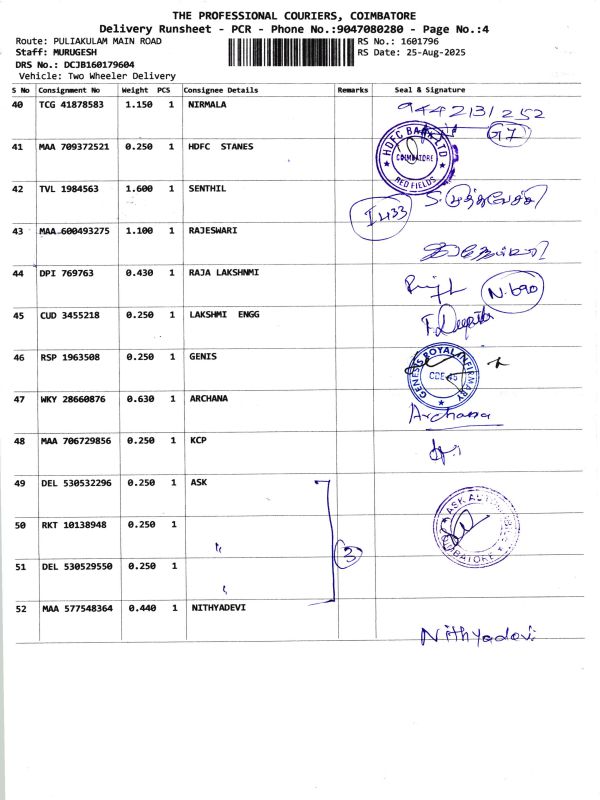 THE PROFESSIONAL COURIERS, COIMBATORE
Delivery Runsheet - PCR - Phone No.:9047080280 - Page No.:4
Route: PULIAKULAM MAIN ROAD RS No.: 1601796
Staff: MURUGESH RS Date: 25-Aug-2025
DRS No.: DCJB160179604
Vehicle: Two Wheeler Delivery
S No Consignment No Weight PCS Consignee Details Remarks Seal & Signature
40 TCG 41878583 1.150 1 NIRMALA 9442131252
G7
41 MAA 709372521 0.250 1 HDFC STANES HDFC BANK LTD COIMBATORE RED FIELDS
42 TVL 1984563 1.600 1 SENTHIL
I433
43 MAA 600493275 1.100 1 RAJESWARI
44 DPI 769763 0.430 1 RAJA LAKSHNMI N.690
45 CUD 3455218 0.250 1 LAKSHMI ENGG F. Deepika
46 RSP 1963508 0.250 1 GENIS GENESIS ROYAL INFIRMARY CBE-45
47 WKY 28660876 0.630 1 ARCHANA Archana
48 MAA 706729856 0.250 1 KCP
49 DEL 530532296 0.250 1 ASK
50 RKT 10138948 0.250 1 "
3
51 DEL 530529550 0.250 1 "
52 MAA 577548364 0.440 1 NITHYADEVI Nithyadevi